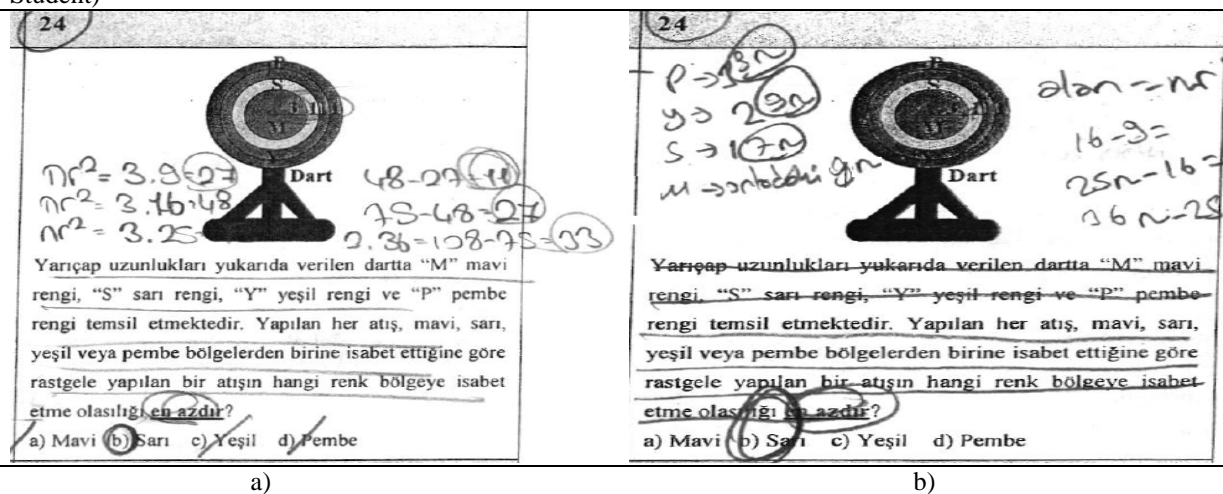 Student)
24
P
S
3 1 1 1
M
Y
Dart
πr² = 3.9=27
πr² = 3.16=48
πr² = 3.25
48-27=
75-48=27
3.36=108-75=33
Yarıçap uzunlukları yukarıda verilen dartta “M” mavi
rengi, “S” sarı rengi, “Y” yeşil rengi ve “P” pembe
rengi temsil etmektedir. Yapılan her atış, mavi, sarı,
yeşil veya pembe bölgelerden birine isabet ettiğine göre
rastgele yapılan bir atışın hangi renk bölgeye isabet
etme olasılığı en azdır?
a) Mavi b) Sarı c) Yeşil d) Pembe
a)
24
P →
y → 2 9π
S → 17π
M → ortadaki 9π
P
S
M
Dart
alan = πr²
16-9=
25π-16=
36π-25
Yarıçap uzunlukları yukarıda verilen dartta “M” mavi
rengi, “S” sarı rengi, “Y” yeşil rengi ve “P” pembe
rengi temsil etmektedir. Yapılan her atış, mavi, sarı,
yeşil veya pembe bölgelerden birine isabet ettiğine göre
rastgele yapılan bir atışın hangi renk bölgeye isabet
etme olasılığı en azdır?
a) Mavi b) Sarı c) Yeşil d) Pembe
b)